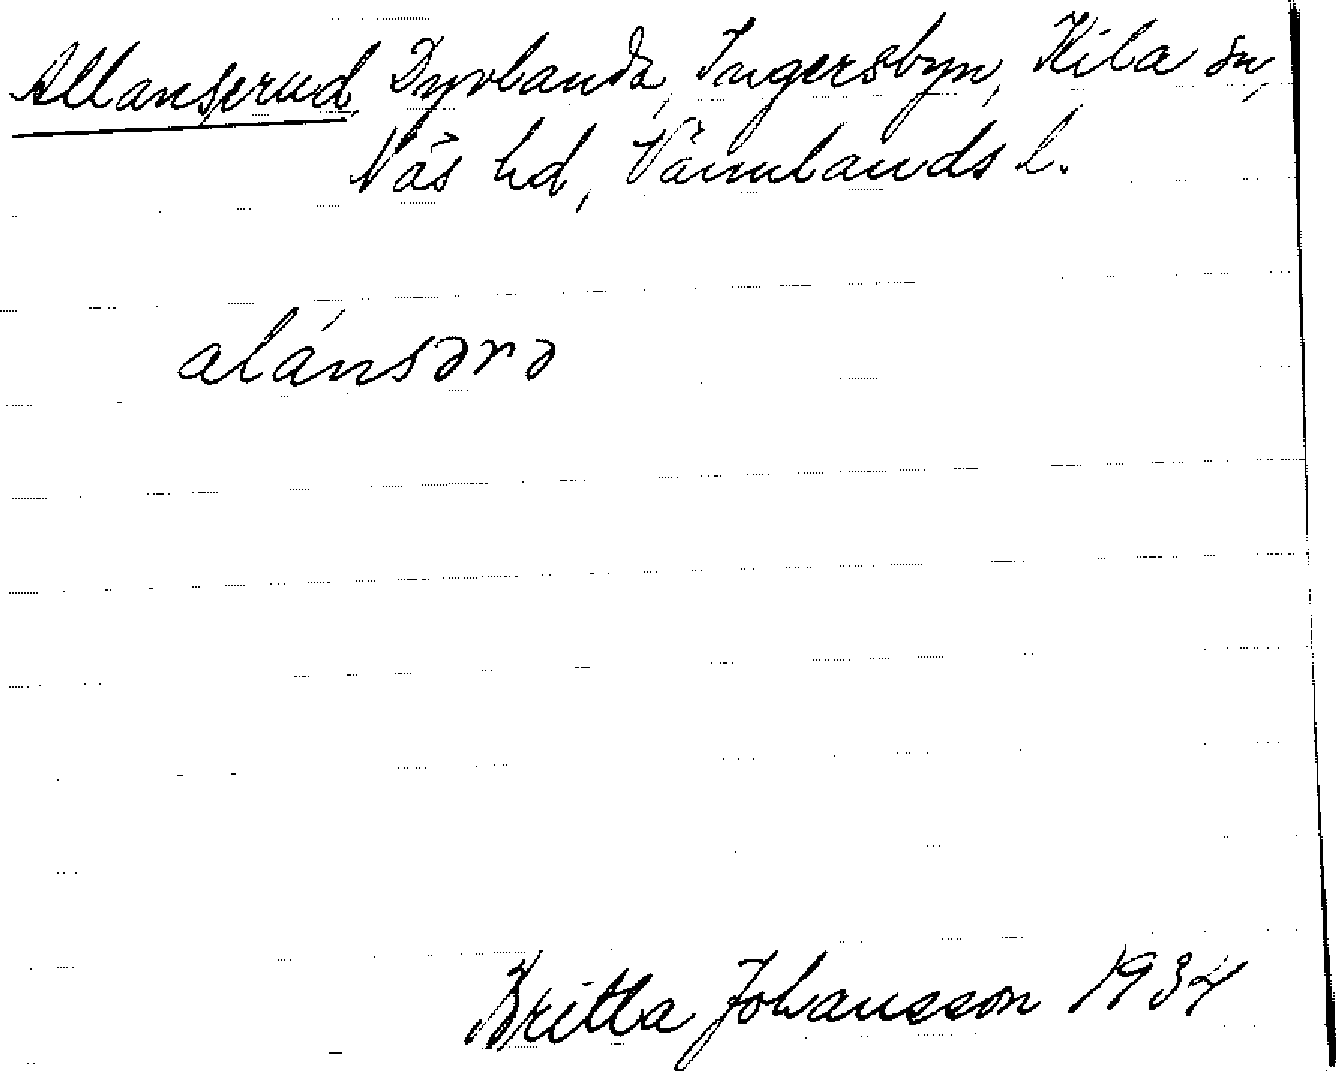 Allanserud, Dyvlanda, Ingersbyn, Kila sn,
Näs hd, Värmlands l.
alánsərə
Britta Johansson 1934